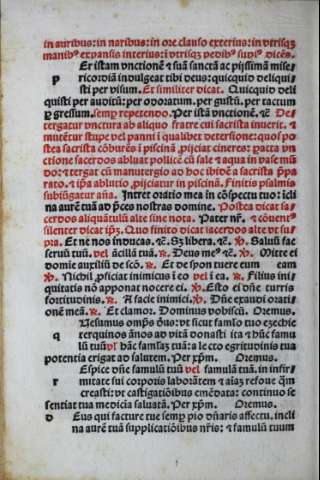 in auribus: in naribus: in ore clauso exterius: in vtrisqȝ
manibꝰ expansis interius: vtrisqȝ pedibꝰ supiꝰ dicēs.
Er istam vnctionē ⁊ suā sanctā ac pijssimā mise
P ricordiā indulgeat tibi deus: quicquid deliqui
sti per visum. Et similiter dicat. Quicquid deli
quisti per auditū: per odoratum. per gustū. per tactum
⁊ gressum. semp repetendo. Per istā vnctionē. ⁊c̄ De
tergatur vnctura ab aliquo fratre cui sacrista inuerit. ⁊
mutētur stupe vel panni i qualibet detersione: quos po
stea sacrista cōburēs i piscinā ꝓijciat cineres: pacta vn
ctione sacerdos abluat pollicē cū sale ⁊ aqua in vase mū
do: ⁊ tergat cū manutergio ad hoc ibidē a sacrista p̄pa
rato. ⁊ ip̄a ablutio ꝓijciatur in piscinā. Finitis psalmis
subiūgatur aña. Intret oratio mea in cōspectu tuo: icli
na aurē tuā ad p̄ces nostras domine. Postea dicat sa
cerdos aliquātulū alte sine nota. Pater nr̄. ⁊ cōuentꝰ
silenter dicat ip̄m. Quo finito dicat iacerdos alte vt su
pra. Et ne nos inducas. ⁊c̄. Sȝ libera. ⁊c̄. ℣. Saluū fac
seruū tuū. vel ācillā tuā. ℟. Deus meꝰ ⁊c̄. ℣. Mitte ei
domie auxiliū de scō. ℟. Et de syon tuere eum eam
℣. Nichil ꝓficiat inimicus i eo vel i ea. ℟. Filius ini
quitatis nō apponat nocere ei. ℣. Esto ei dn̄e turris
fortitudinis. ℟. A facie inimici. ℣. Dn̄e exaudi orati
onē meā. ℟. Et clamor. Dominus vobiscū. Oremus.
Uesumus omp̄s ōns: vt sicut famlo tuo ezechie
q terquinos ānos ad vitā donasti ita ⁊ hūc famu
lū tuū vl hāc famlaȝ tuā: a lecto egritudinis tua
potentia erigat ad salutem. Per xp̄m. Oremus.
Espice dn̄e famulū tuū vel famulā tuā. in infir
r mitate sui corporis laborātem ⁊ aiaȝ refoue q̄m
creasti: vt castigatiōibus emēdata: continuo se
sentiat tua medicia saluatā. Per xp̄m. Oremus.
D Eus qui facture tue semꝑ pio dn̄aris affectu. incli
na aurē tuā supplicatiōibus nr̄is: ⁊ famulū tuum